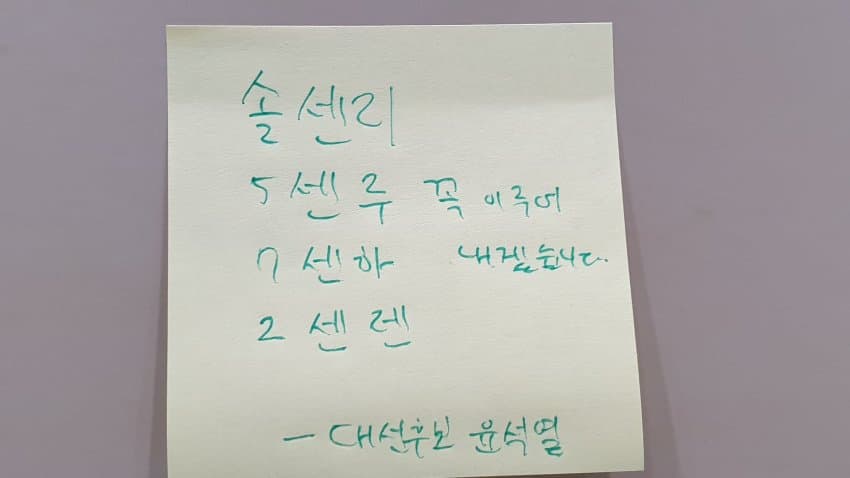 솔센리
5센루 꼭 이루어
7센하 내겠습니다.
2센렌
- 대선후보 윤석열